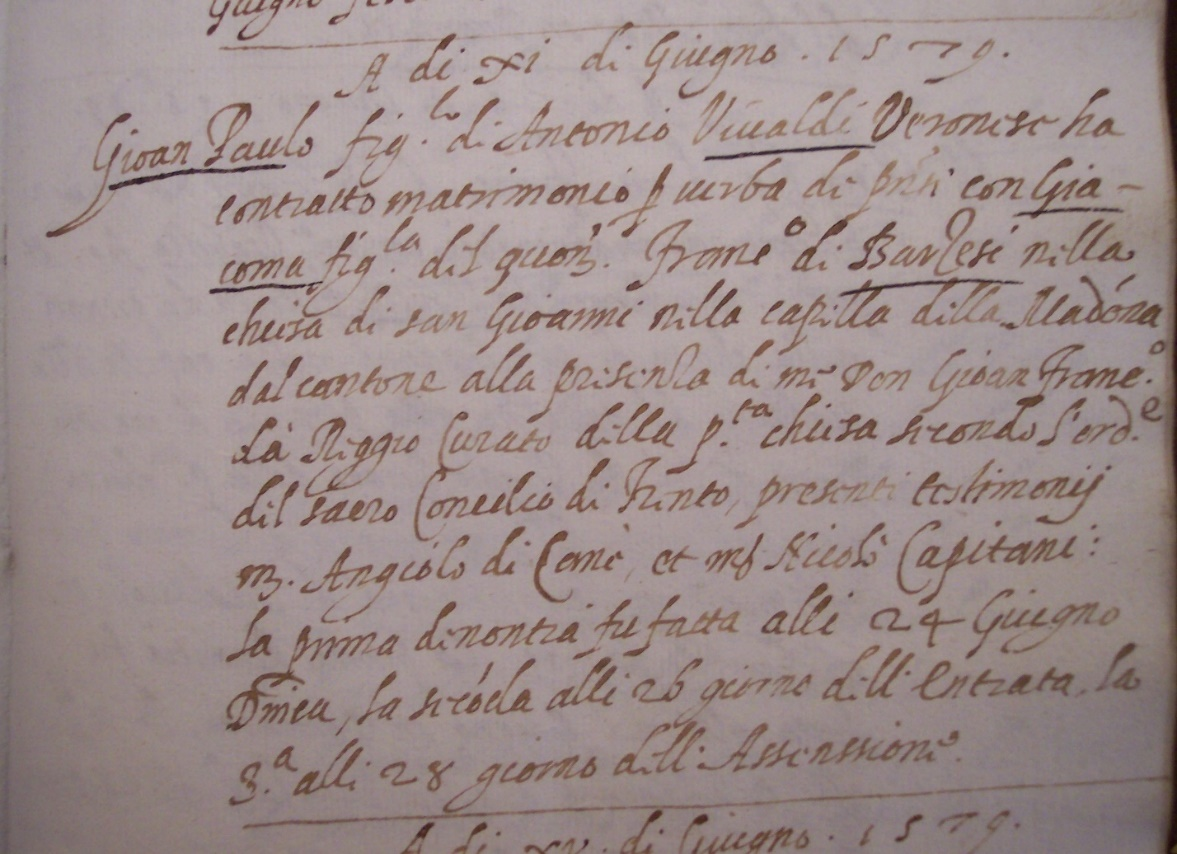 Giugno
A di xi di Giugno . 1579.
Gioan Paulo fig.lo di Antonio Viualdi Veronese ha
contratto matrimonio ꝑ uerba di pñti con Gia-
coma fig.la dil quoñ. Franc.o di Barlesi nilla
chiesa di san Gioanni nilla capilla dilla Madóna
dal cantone alla presenza di me Don Gioan Franc.o
da Reggio Curato dilla p.ta chiesa secondo l'ord.e
dil sacro Concilio di Trento, presenti testimonij
m. Angiolo di Cene, et mſ Nicolò Capitani:
la prima denontia fu fatta alli 24 Giugno
Dmica, la secóda alli 26 giorno dell' Entrata, la
3.a alli 28 giorno dell' Assenssione.
A di xv di Giugno . 1579.